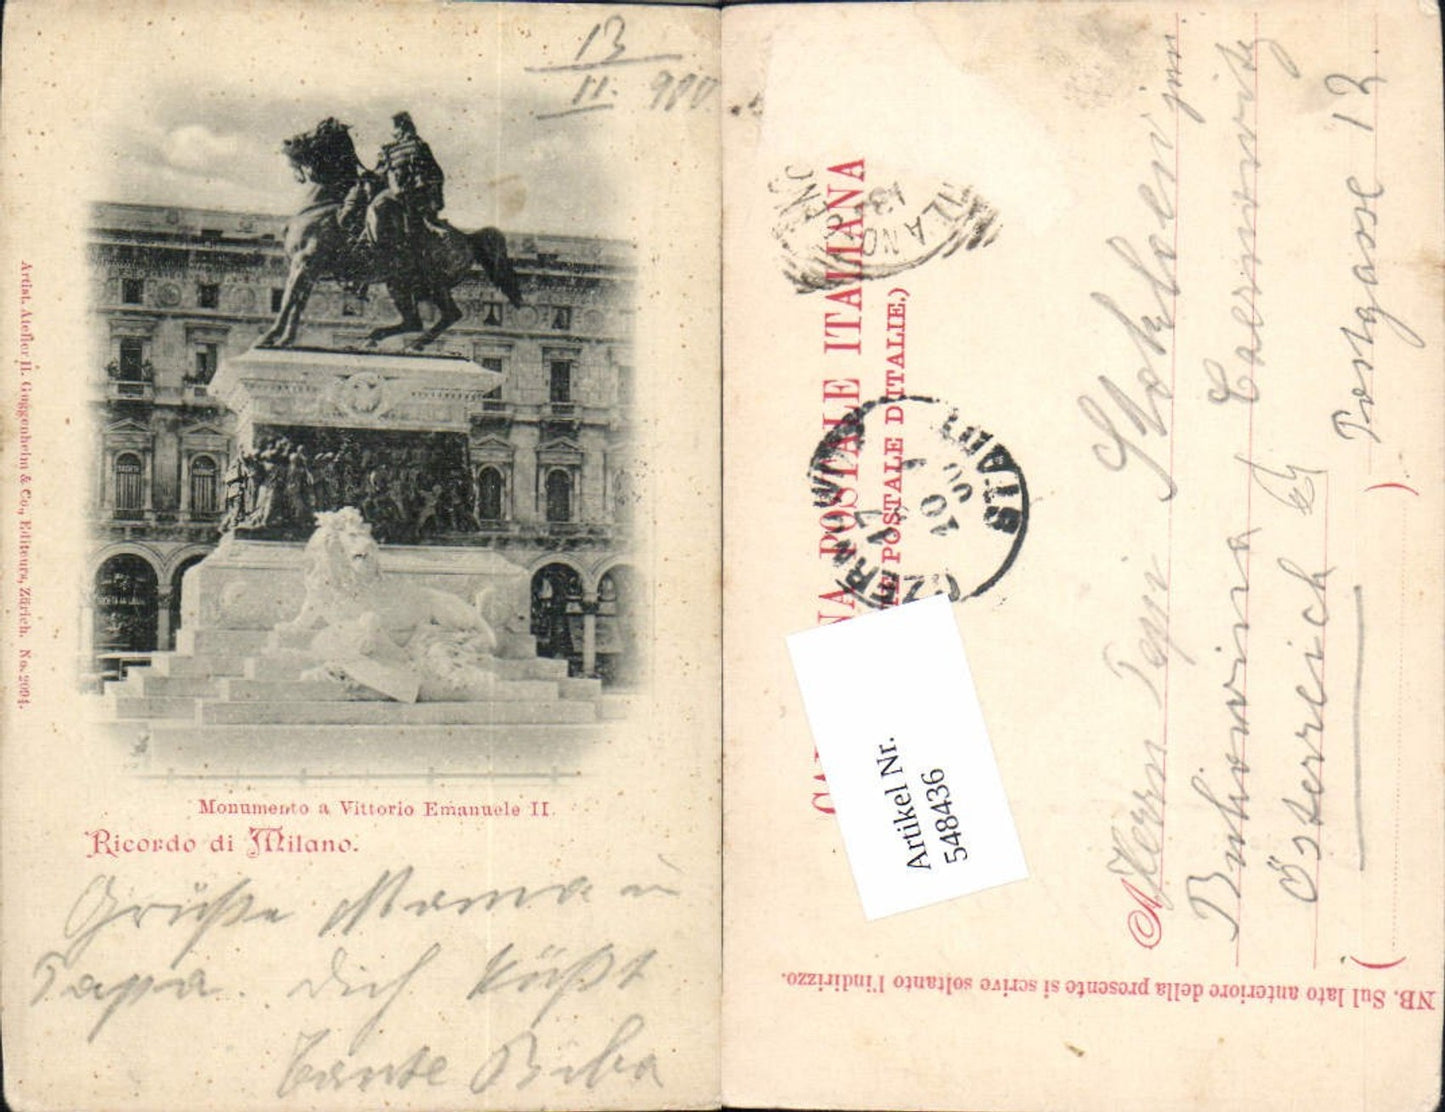 13
11. 900
Artist. Atelier H. Guggenheim & Co., Editeurs, Zürich. No. 2094.
Monumento a Vittorio Emanuele II.
Ricordo di Milano.
Grüße Mama u
Papa. Dich küßt
Tante Biba
POSTALE ITALIANA
POSTALE D'ITALIE.)
MILANO
13-
STADT
10
Artikel Nr.
548436
Herrn Pepi
jun
Bukowina Czernowitz
Österreich
12
NB. Sul lato anteriore della presente si scrive soltanto l'indirizzo.